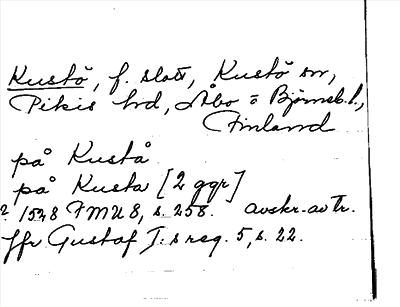 Kustö, f. slott, Kustö sn,
Pikis hd, Åbo o Björneb. l.,
Finland
på Kustå
på Kusta [2 ggr]
1528 FMU 8, s. 258. avskr. av tr.
Jfr Gustaf I:s reg. 5, s. 22.